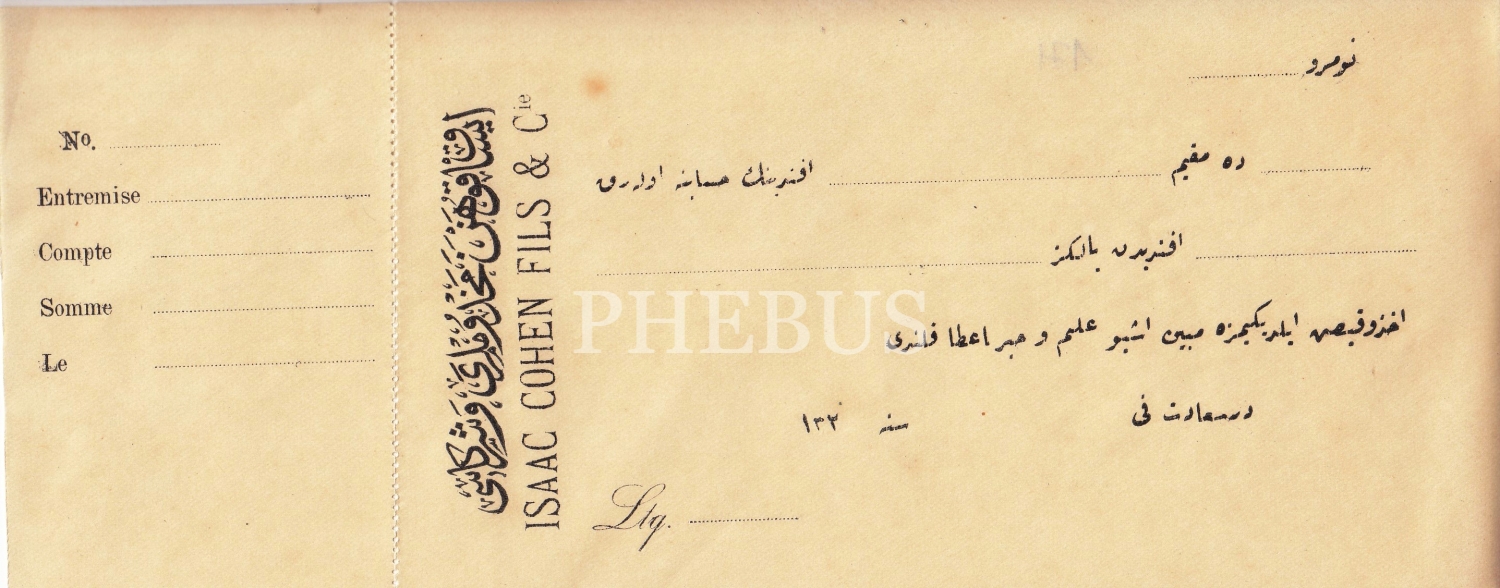 No. ....................
Entremise ....................
Compte ....................
Somme ....................
Le ....................
ایساق قوهن مخدوملری و شرکاسی
ISAAC COHEN FILS & Cie
نومرو ....................
.................... ده مقیم .................... افندینك حسابنه اوله رق
.................... افندیدن یالكز ....................
اخذ و قبض ایلدیكیمزه مبین اشبو علم و خبر اعطا قلندی
درسعادت فی سنه ١٣٢
Ltq. ....................
PHEBUS